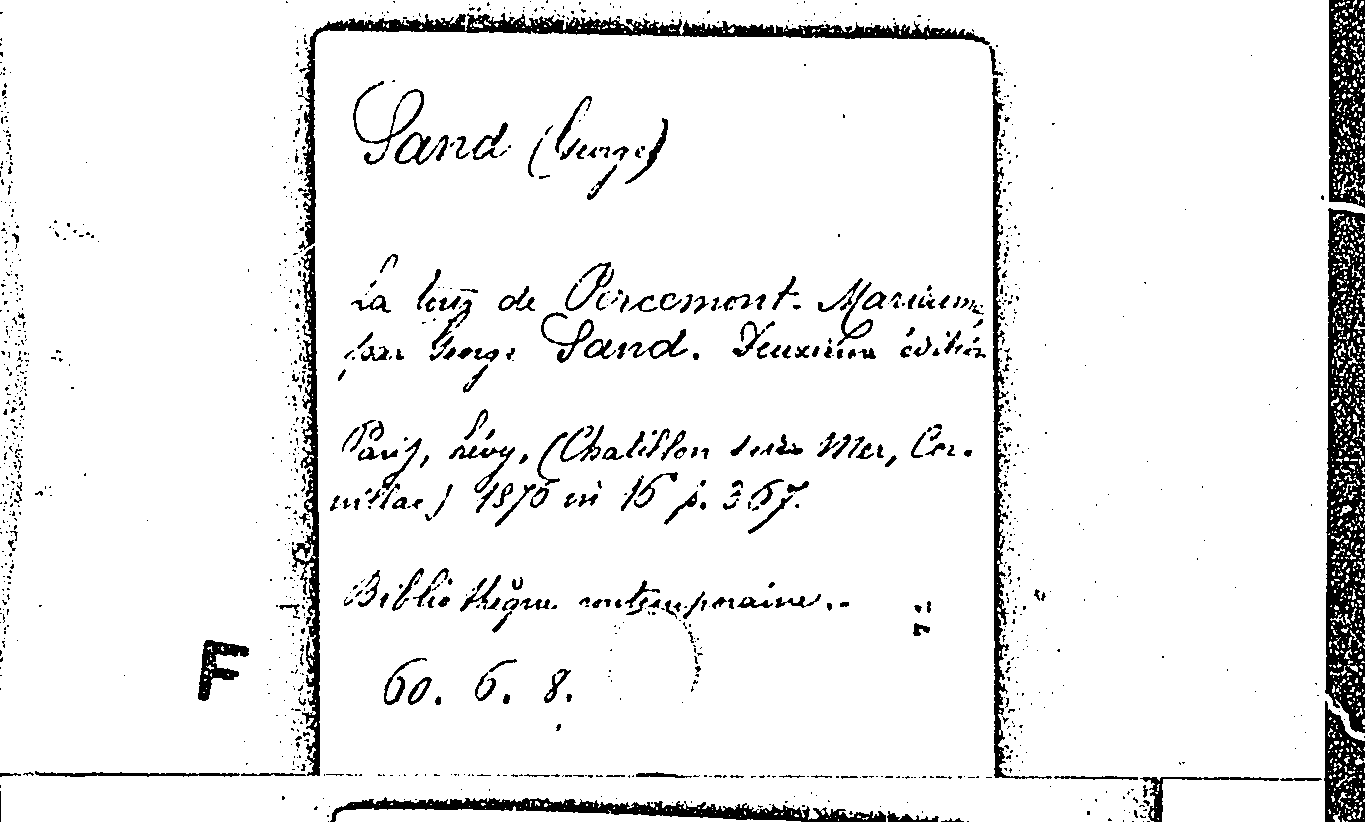 Sand (George)
La tour de Percemont. Marianne
par George Sand. Deuxième édition
Paris, Lévy, (Chatillon sur Mer, Cor-
nillac) 1876 in 16 p. 367.
Bibliothèque contemporaine.-
60. 6. 8.
F